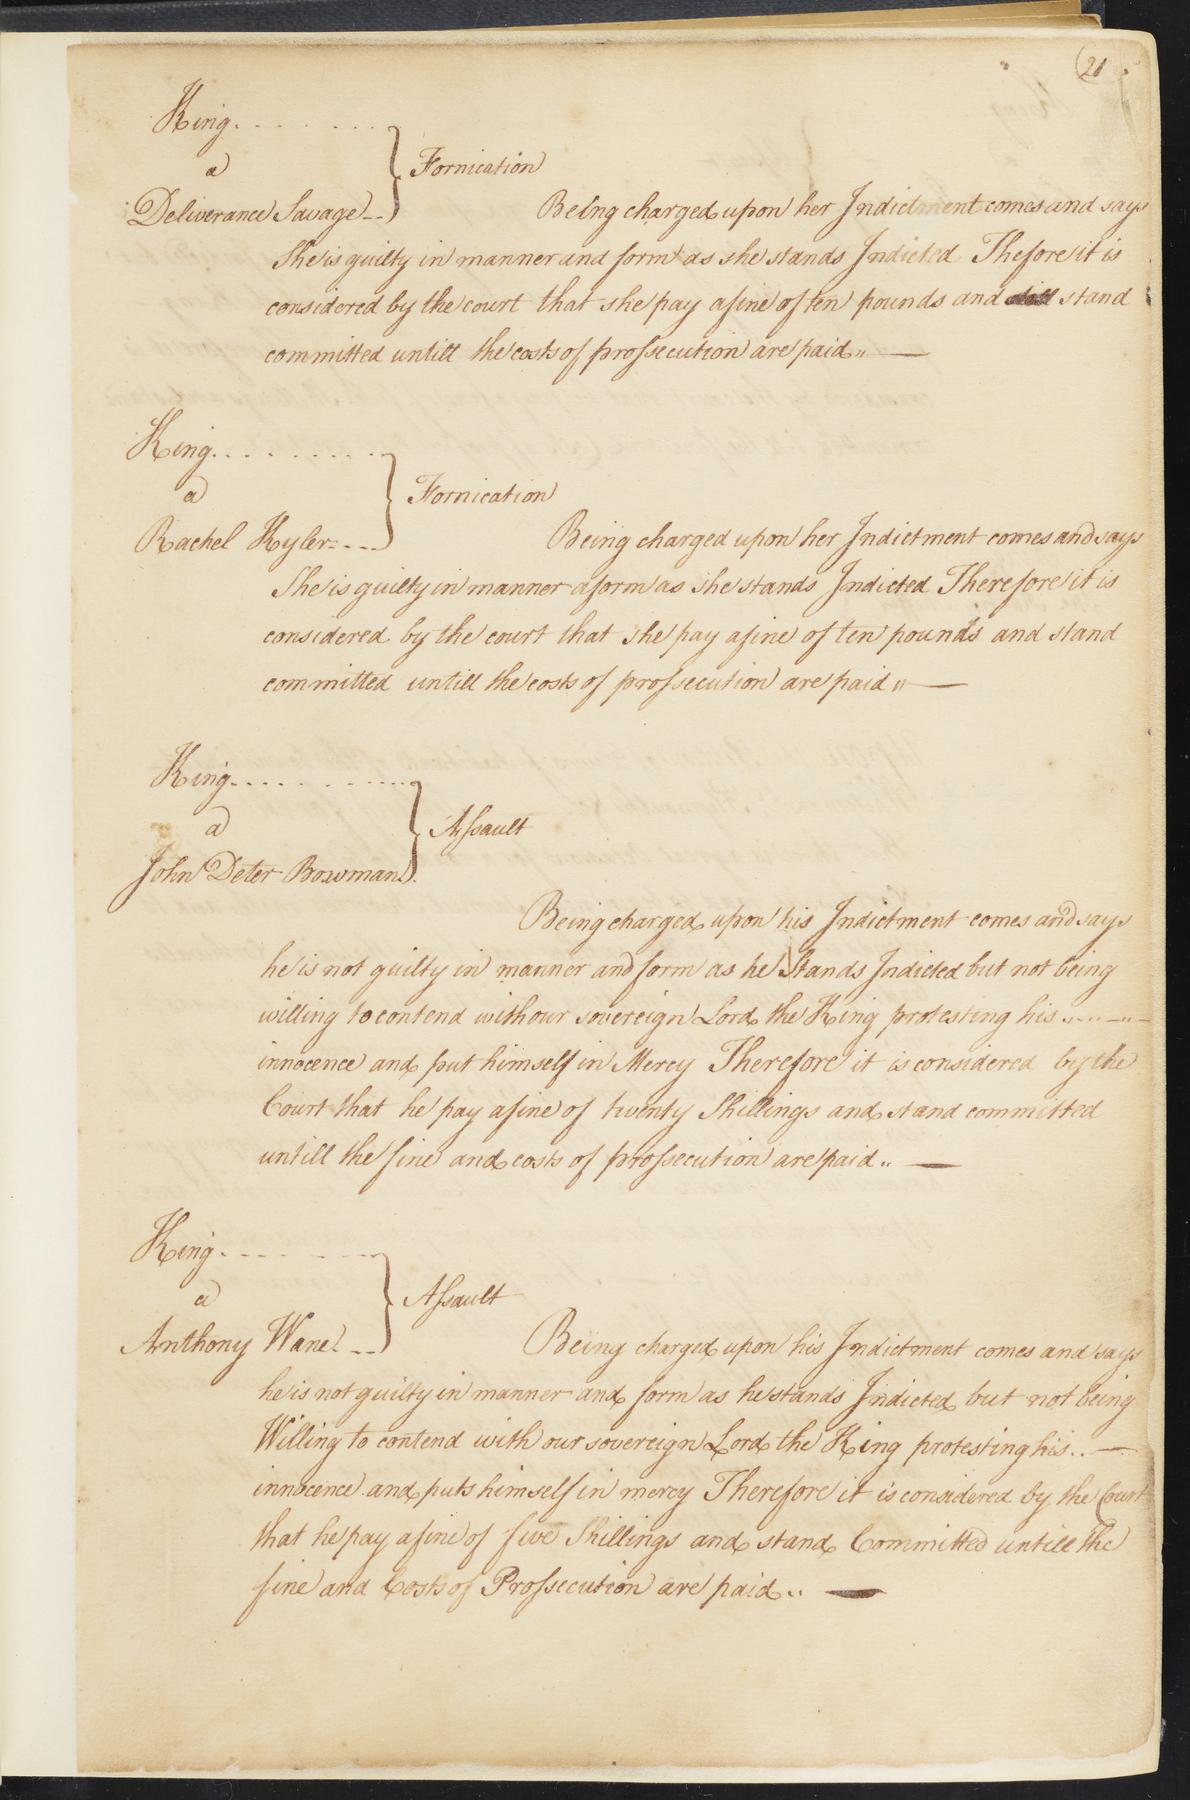 21
King
a
Fornication
Deliverance Savage
Being charged upon her Indictment comes and says
She is guilty in manner and form as she stands Indicted Thefore it is
considered by the court that she pay a fine of ten pounds and stand
committed untill the costs of prossecution are paid
King
a
Fornication
Rachel Kyler
Being charged upon her Indictment comes and says
She is guilty in manner a form as she stands Indicted Therefore it is
considered by the court that she pay a fine of ten pounds and stand
committed untill the costs of prossecution are paid
King
a
Assault
John Deter Bowman
Being charged upon his Indictment comes and says
he is not guilty in manner and form as he Stands Indicted but not being
willing to contend with our sovereign Lord the King protesting his
innocence and put himself in Mercy Therefore it is considered by the
Court that he pay a fine of twenty Shillings and stand committed
untill the fine and costs of prossecution are paid
King
a
Assault
Anthony Wane
Being charged upon his Indictment comes and says
he is not guilty in manner and form as he stands Indicted but not being
Willing to contend with our sovereign Lord the King protesting his
innocence and puts himself in mercy Therefore it is considered by the Court
that he pay a fine of five Shillings and stand Committed untill the
fine and Costs of Prossecution are paid